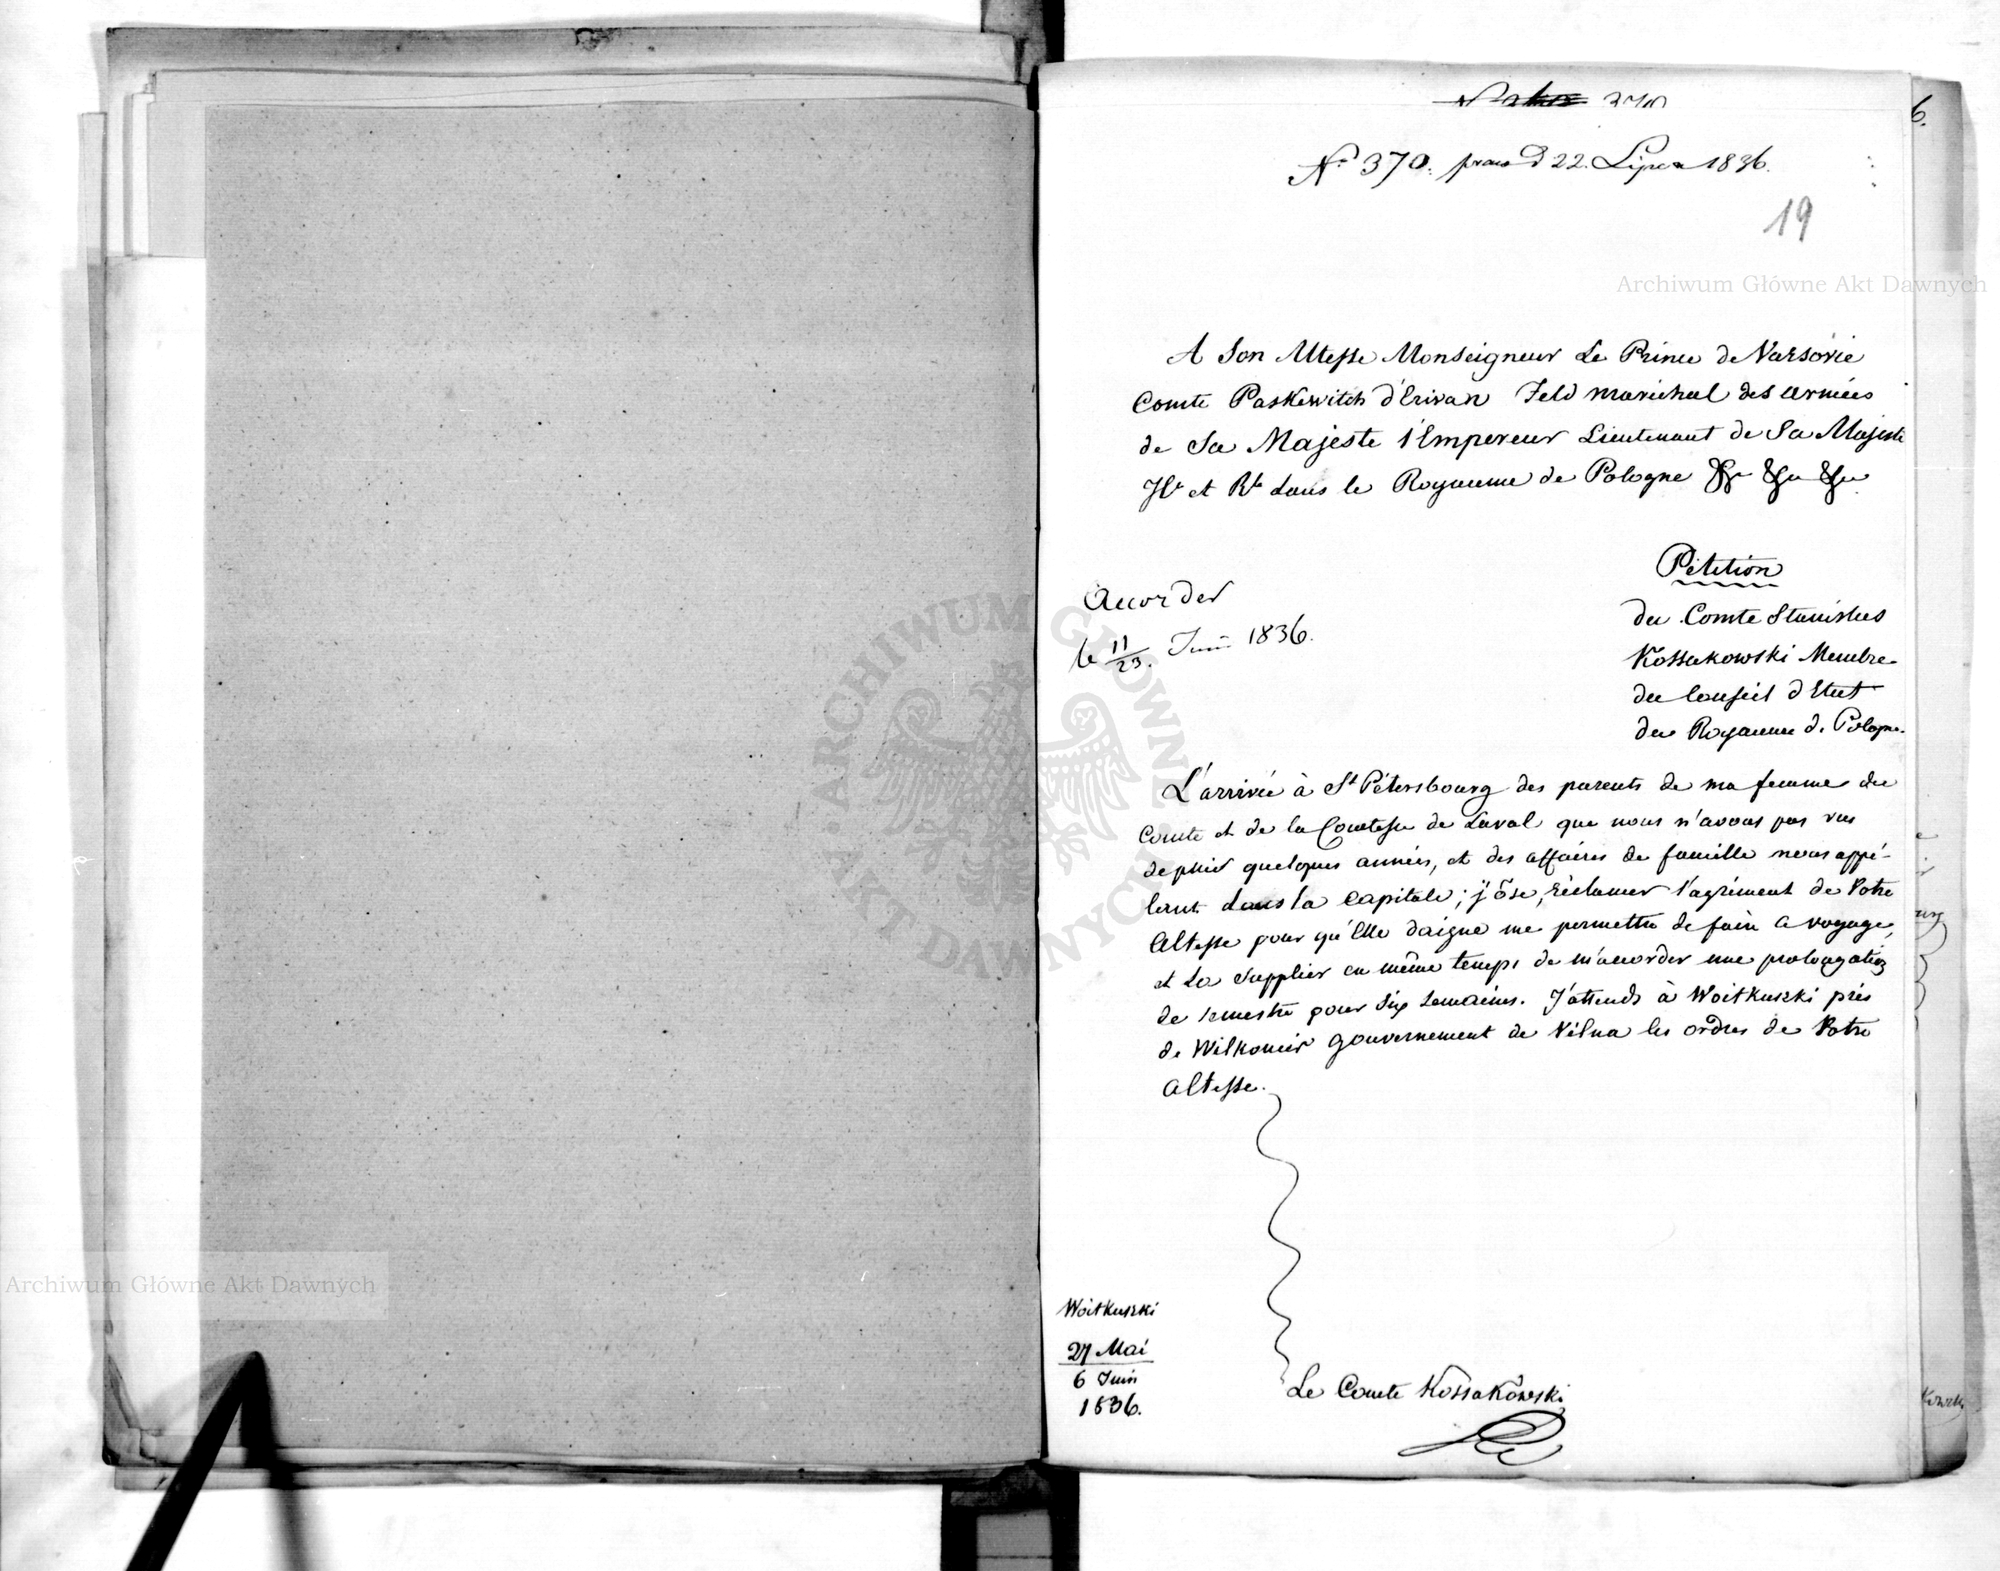 370
6.
No 370. praes d 22. Lipca 1836.
19
Archiwum Główne Akt Dawnych
A Son Altesse Monseigneur Le Prince de Varsovie
Comte Paskewitch d'Erivan Feld maréchal des armées
de Sa Majeste l'Empereur Lieutenant de Sa Majeste
Ile et Rle dans le Royaume de Pologne &c &c &c
Pétition
du Comte Stanislas
Kossakowski Membre
du Conseil d'Etat
du Royaume de Pologne.
Accorder
le 11/23. Juin 1836.
L'arrivée à St Pétersbourg des parents de ma femme du
Comte et de la Comtesse de Laval que nous n'avons pas vus
depuis quelques années, et des affaires de famille nous appé-
lant dans la capitale; j'ôse réclamer l'agrément de Votre
Altesse pour qu'Elle daigne me permettre de faire ce voyage,
et La supplier en même temps de m'accorder une prolongation
de semestre pour six semaines. J'attends à Woitkuszki près
de Wilkomir gouvernement de Vilna les ordres de Votre
Altesse.
Woitkuszki
27 Mai
6 Juin
1836.
Le Comte Kossakowski
ARCHIWUM GŁÓWNE AKT DAWNYCH
Archiwum Główne Akt Dawnych